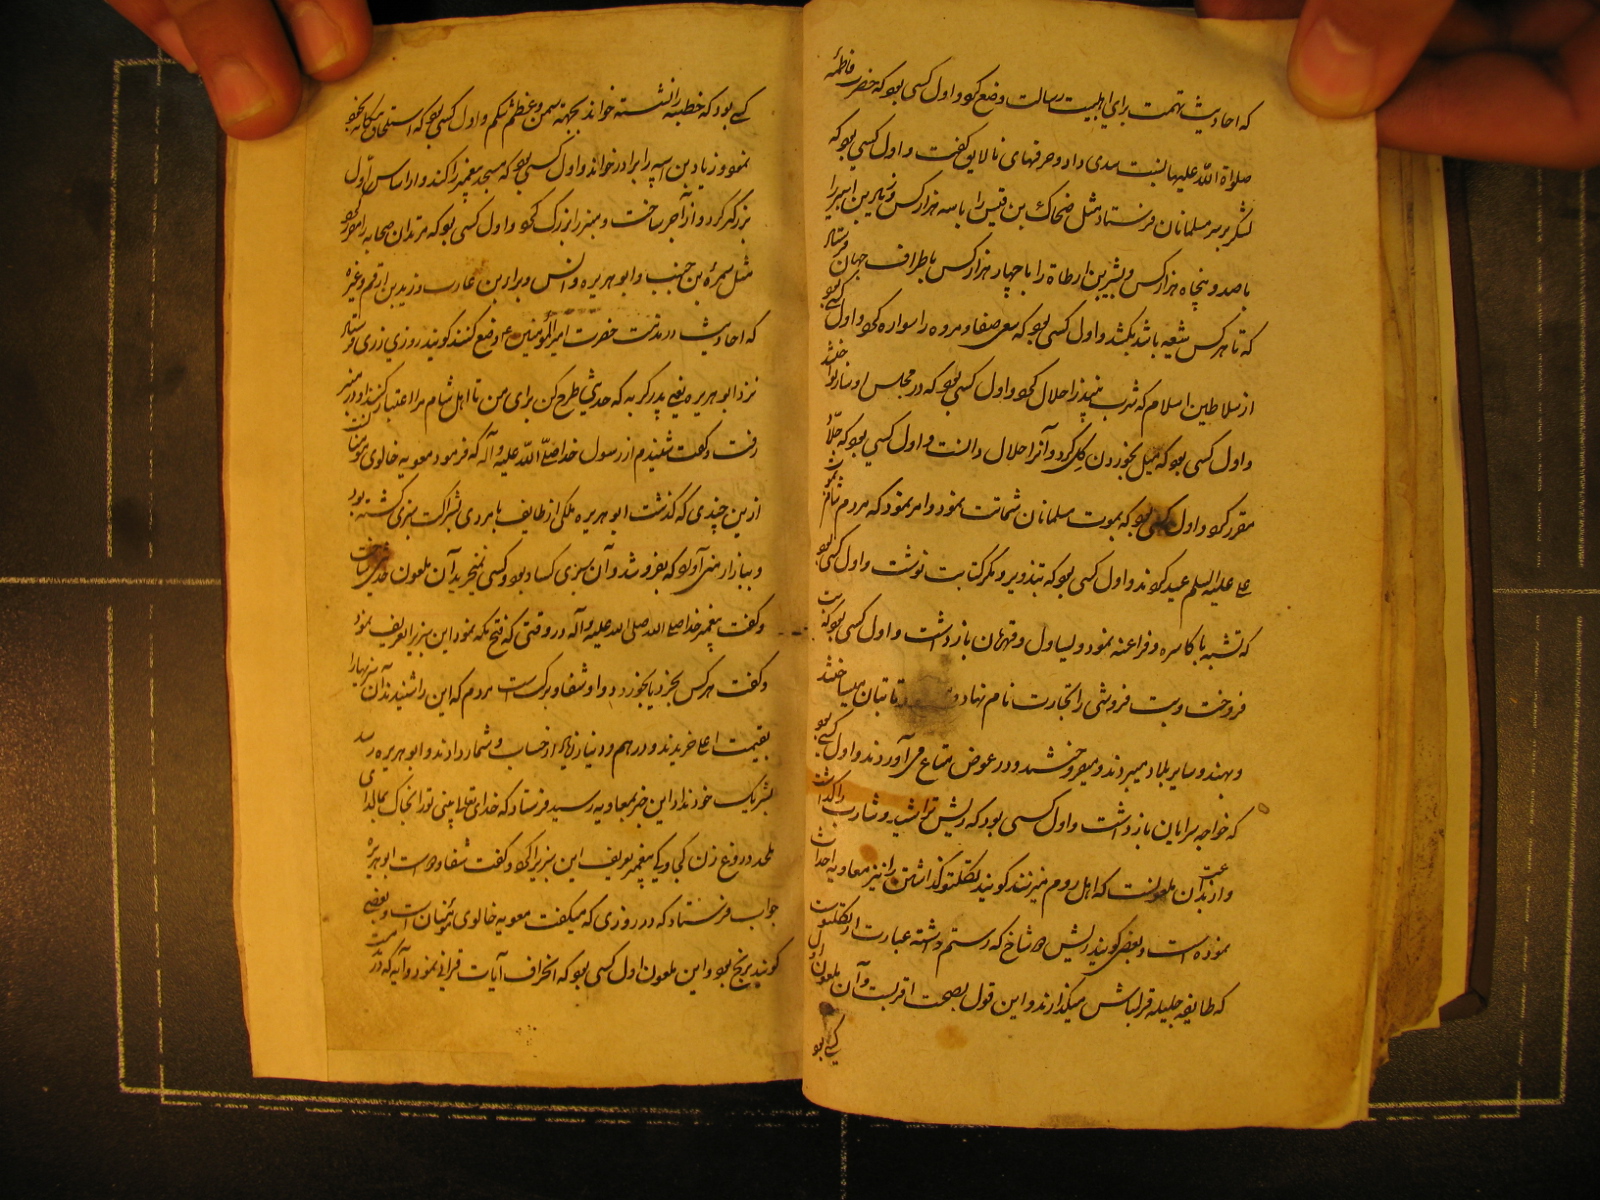 که احادیث تهمت برای اهلبیت رسالت وضع کرد و اول کسی بود که حضرت فاطمه
صلواة الله علیها نسبت بدی داد و حرفهای نالایق گفت و اول کسی بود که
لشکر بر سر مسلمانان فرستاد مثل ضحاک بن قیس را با سه هزار کس و
با صد و پنجاه هزار کس و بشر بن ارطاة را با چهار هزار کس باطراف جهان فرستاد
که تا هر کس شیعه باشد بکشد و اول کسی بود که سعی صفا و مروه را سواره کرد و اول کسی بود
از سلاطین اسلام که شرب نبیذ را حلال کرد و اول کسی بود که در مجلس او ساز
و اول کسی بود که میل بخوردن گل کرد و آنرا حلال دانست و اول کسی بود که
مقرر کرد و اول کسی بود که بموت مسلمانان شماتت نمود و امر نمود که مردم
علی علیه السلم عید کردند و اول کسی بود که بتذویر و مکر کتابت نوشت و اول کسی بود
که تشبه باکاسره و فراعنه نمود و یساول و قهرمان بازداشت و اول کسی بود که بت
فروخت و بت فروشی را تجارت نام نهاد و تا بتان میساختند
و بهند و سایر بلاد میبردند و میفروختند و در عوض متاع می آوردند و اول کسی بود
که خواجه سرایان بازداشت و اول کسی بود که ریش تراشید و شارب را گذاشت
و از بدعت آن ملعونست که اهل روم میزنند گویند گذاشتن را نیز معاویه احداث
نموده است و بعضی گویند ریش دو شاخ که رستم داشته عبارت از
که طایفه جلیله قزلباش میگذارند و این قول بصحت اقربست و آن ملعون اول
کسی بود
کسی بود که خطبه را نشسته خواند بجهة سمن و عظم شکم و اول کسی بود که استلحاق
نمود و زیاد بن ابیه را برادر خواند و اول کسی بود که مسجد پیغمبر را کند و از اساس اول
بزرگتر کرد و از آجر ساخت و منبر را بزرگ کرد و اول کسی بود که مرتدان صحابه را امر کرد
مثل سمرة بن جندب و ابو هریره و انس و براء بن عازب و زید بن ارقم و غیره
که احادیث در مذمت حضرت امیر المؤمنین ع وضع کنند گویند روزی زری فرستاد
نزد ابو هریره یعنی پدر گربه که حدیثی طرح کن برای من تا اهل شام مرا اعتبار کنند او بر منبر
رفت و گفت شنیدم از رسول خدا صلی الله علیه و آله که فرمود معویه خالوی مؤمنانست
ازین چندی که گذشت ابو هریره ملکی از طایف با مردی بشراکت سبزی کشته بود
و ببازار آورد که بفروشد و آن سبزی کساد بود و کسی نمیخرید آن ملعون حدیثی ساخت
و گفت پیغمبر خدا صلی الله علیه و آله در وقتی که فتح مکه نمود این سبزیرا تعریف نمود
و گفت هر کس بخرد یا بخورد دوا و شفا و برکت است مردم که این را شنیدند آن سبزیها را
بقیمت اعلا خریدند و درهم و دینار زیاده از حساب و شمار دادند و ابو هریره رسد
بشریک خود نداد این خبر بمعاویه رسید فرستاد که خدای تعالی بینی ترا بخاک بمالد ای
ملحد دروغ زن کجا دیدی که پیغمبر تعریف این سبزیرا کرد و گفت شفا و دواست ابو هریره
جواب فرستاد که در روزی که میگفت معویه خالوی مؤمنان است و بعضی
گویند برنج بود و این ملعون اول کسی بود که انحراف آیات قرانی نمود و آیه که در